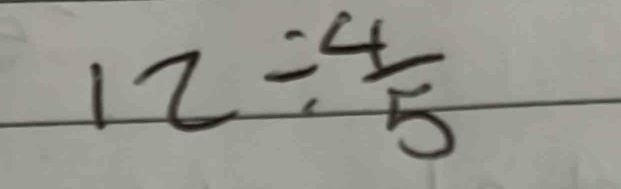 12 ÷ 4/5